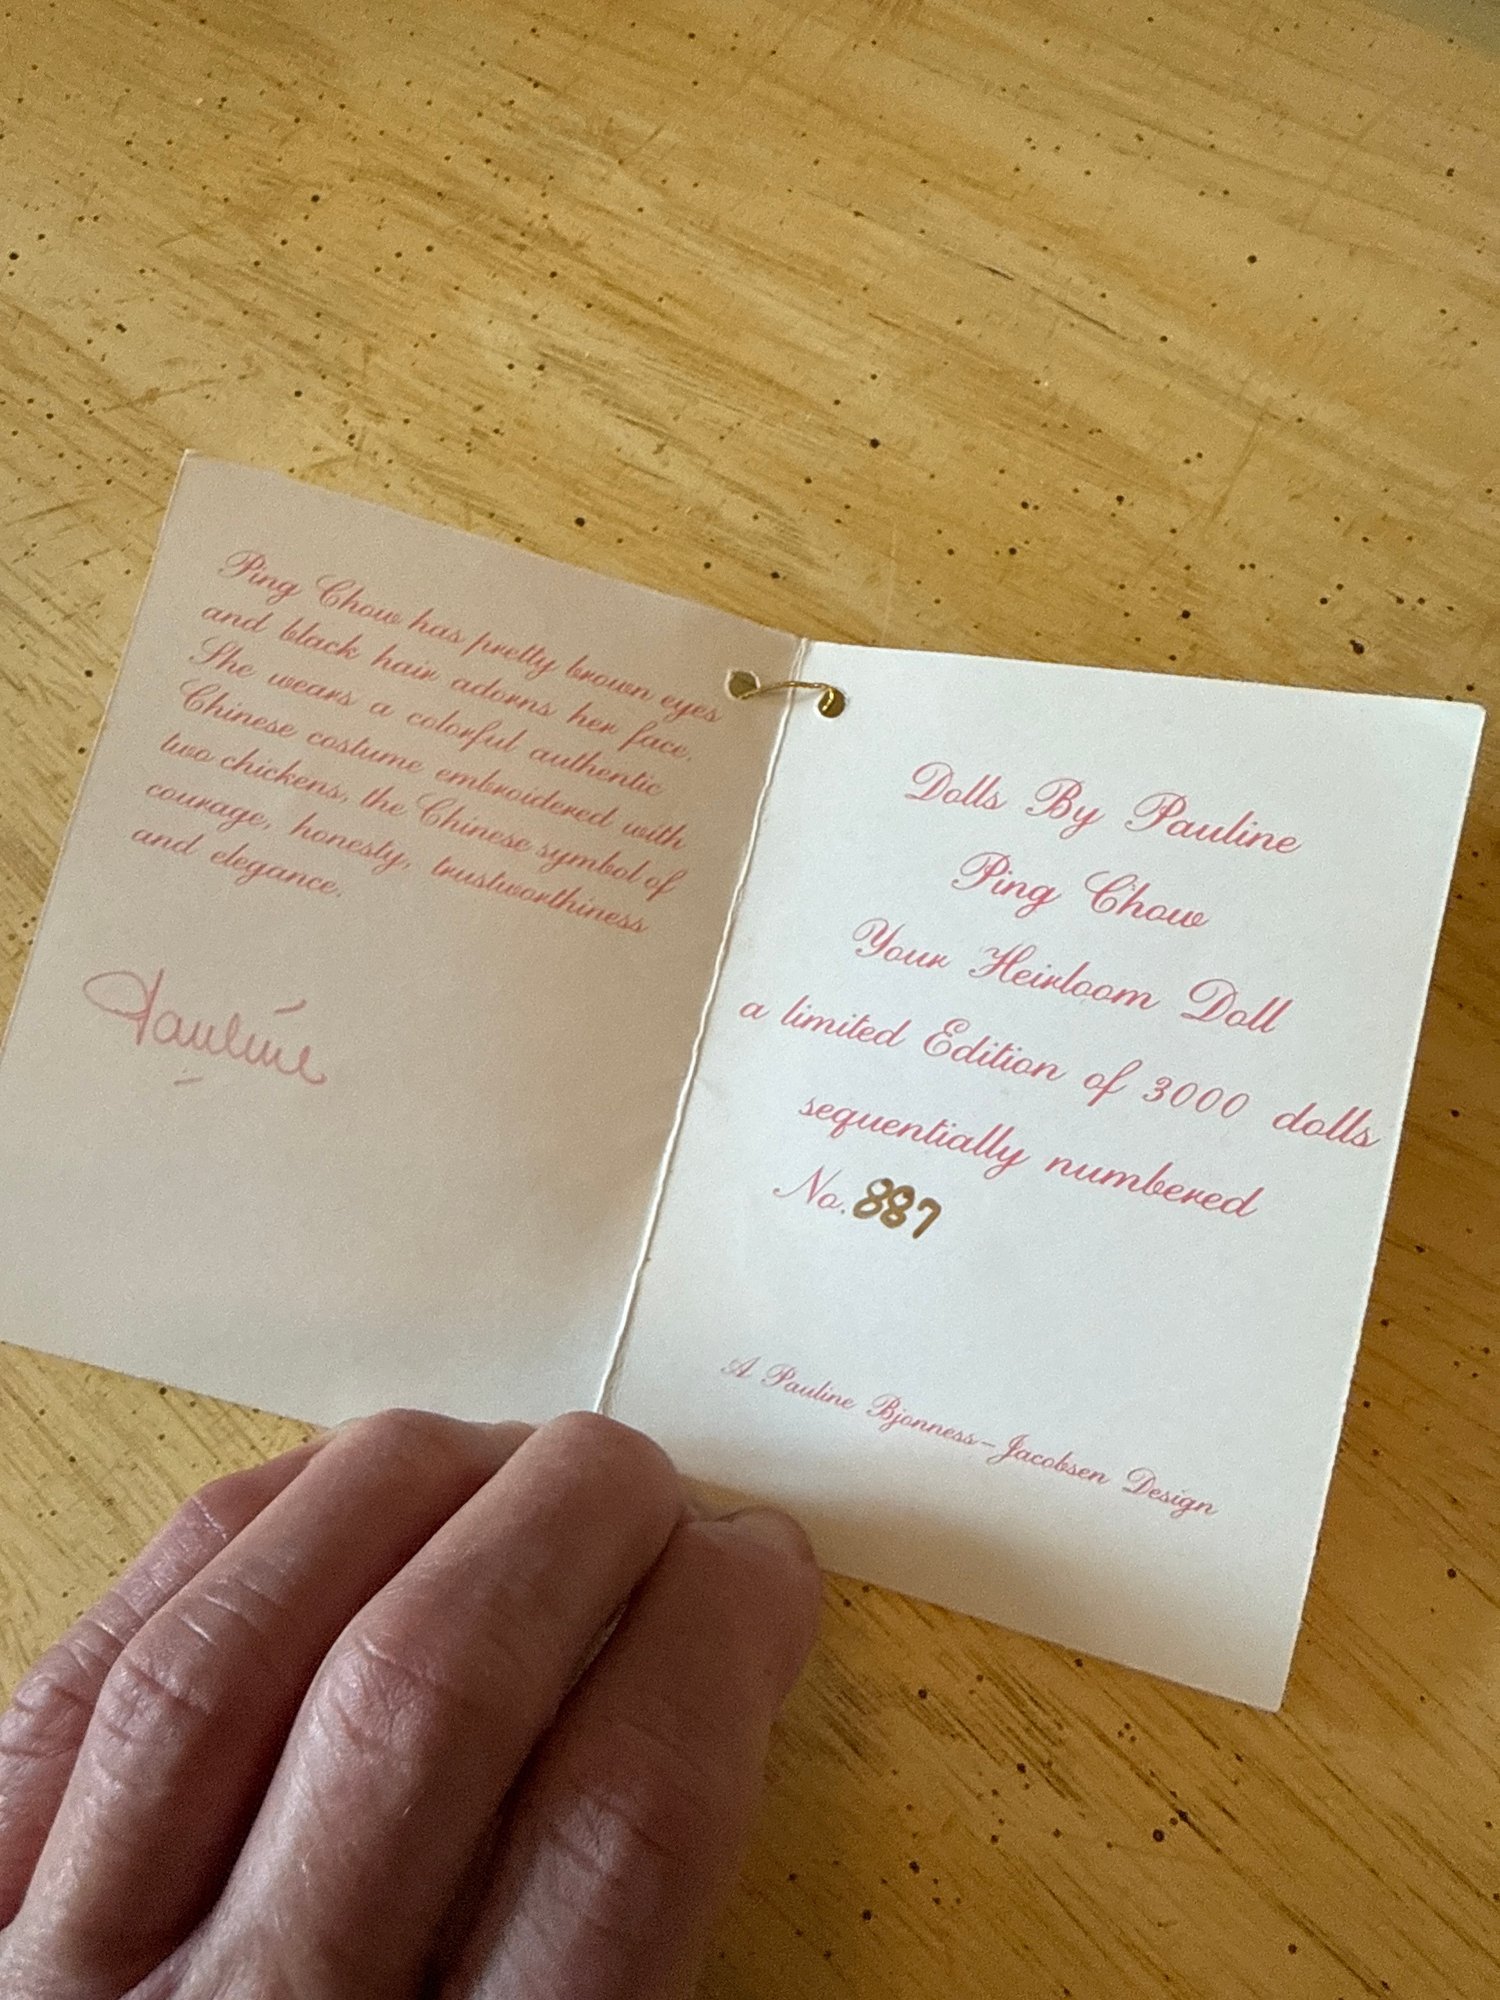 Ping Chow has pretty brown eyes
and black hair adorns her face.
She wears a colorful authentic
Chinese costume embroidered with
two chickens, the Chinese symbol of
courage, honesty, trustworthiness
and elegance.
Pauline
Dolls By Pauline
Ping Chow
Your Heirloom Doll
a limited Edition of 3000 dolls
sequentially numbered
No. 887
A Pauline Bjonness-Jacobsen Design